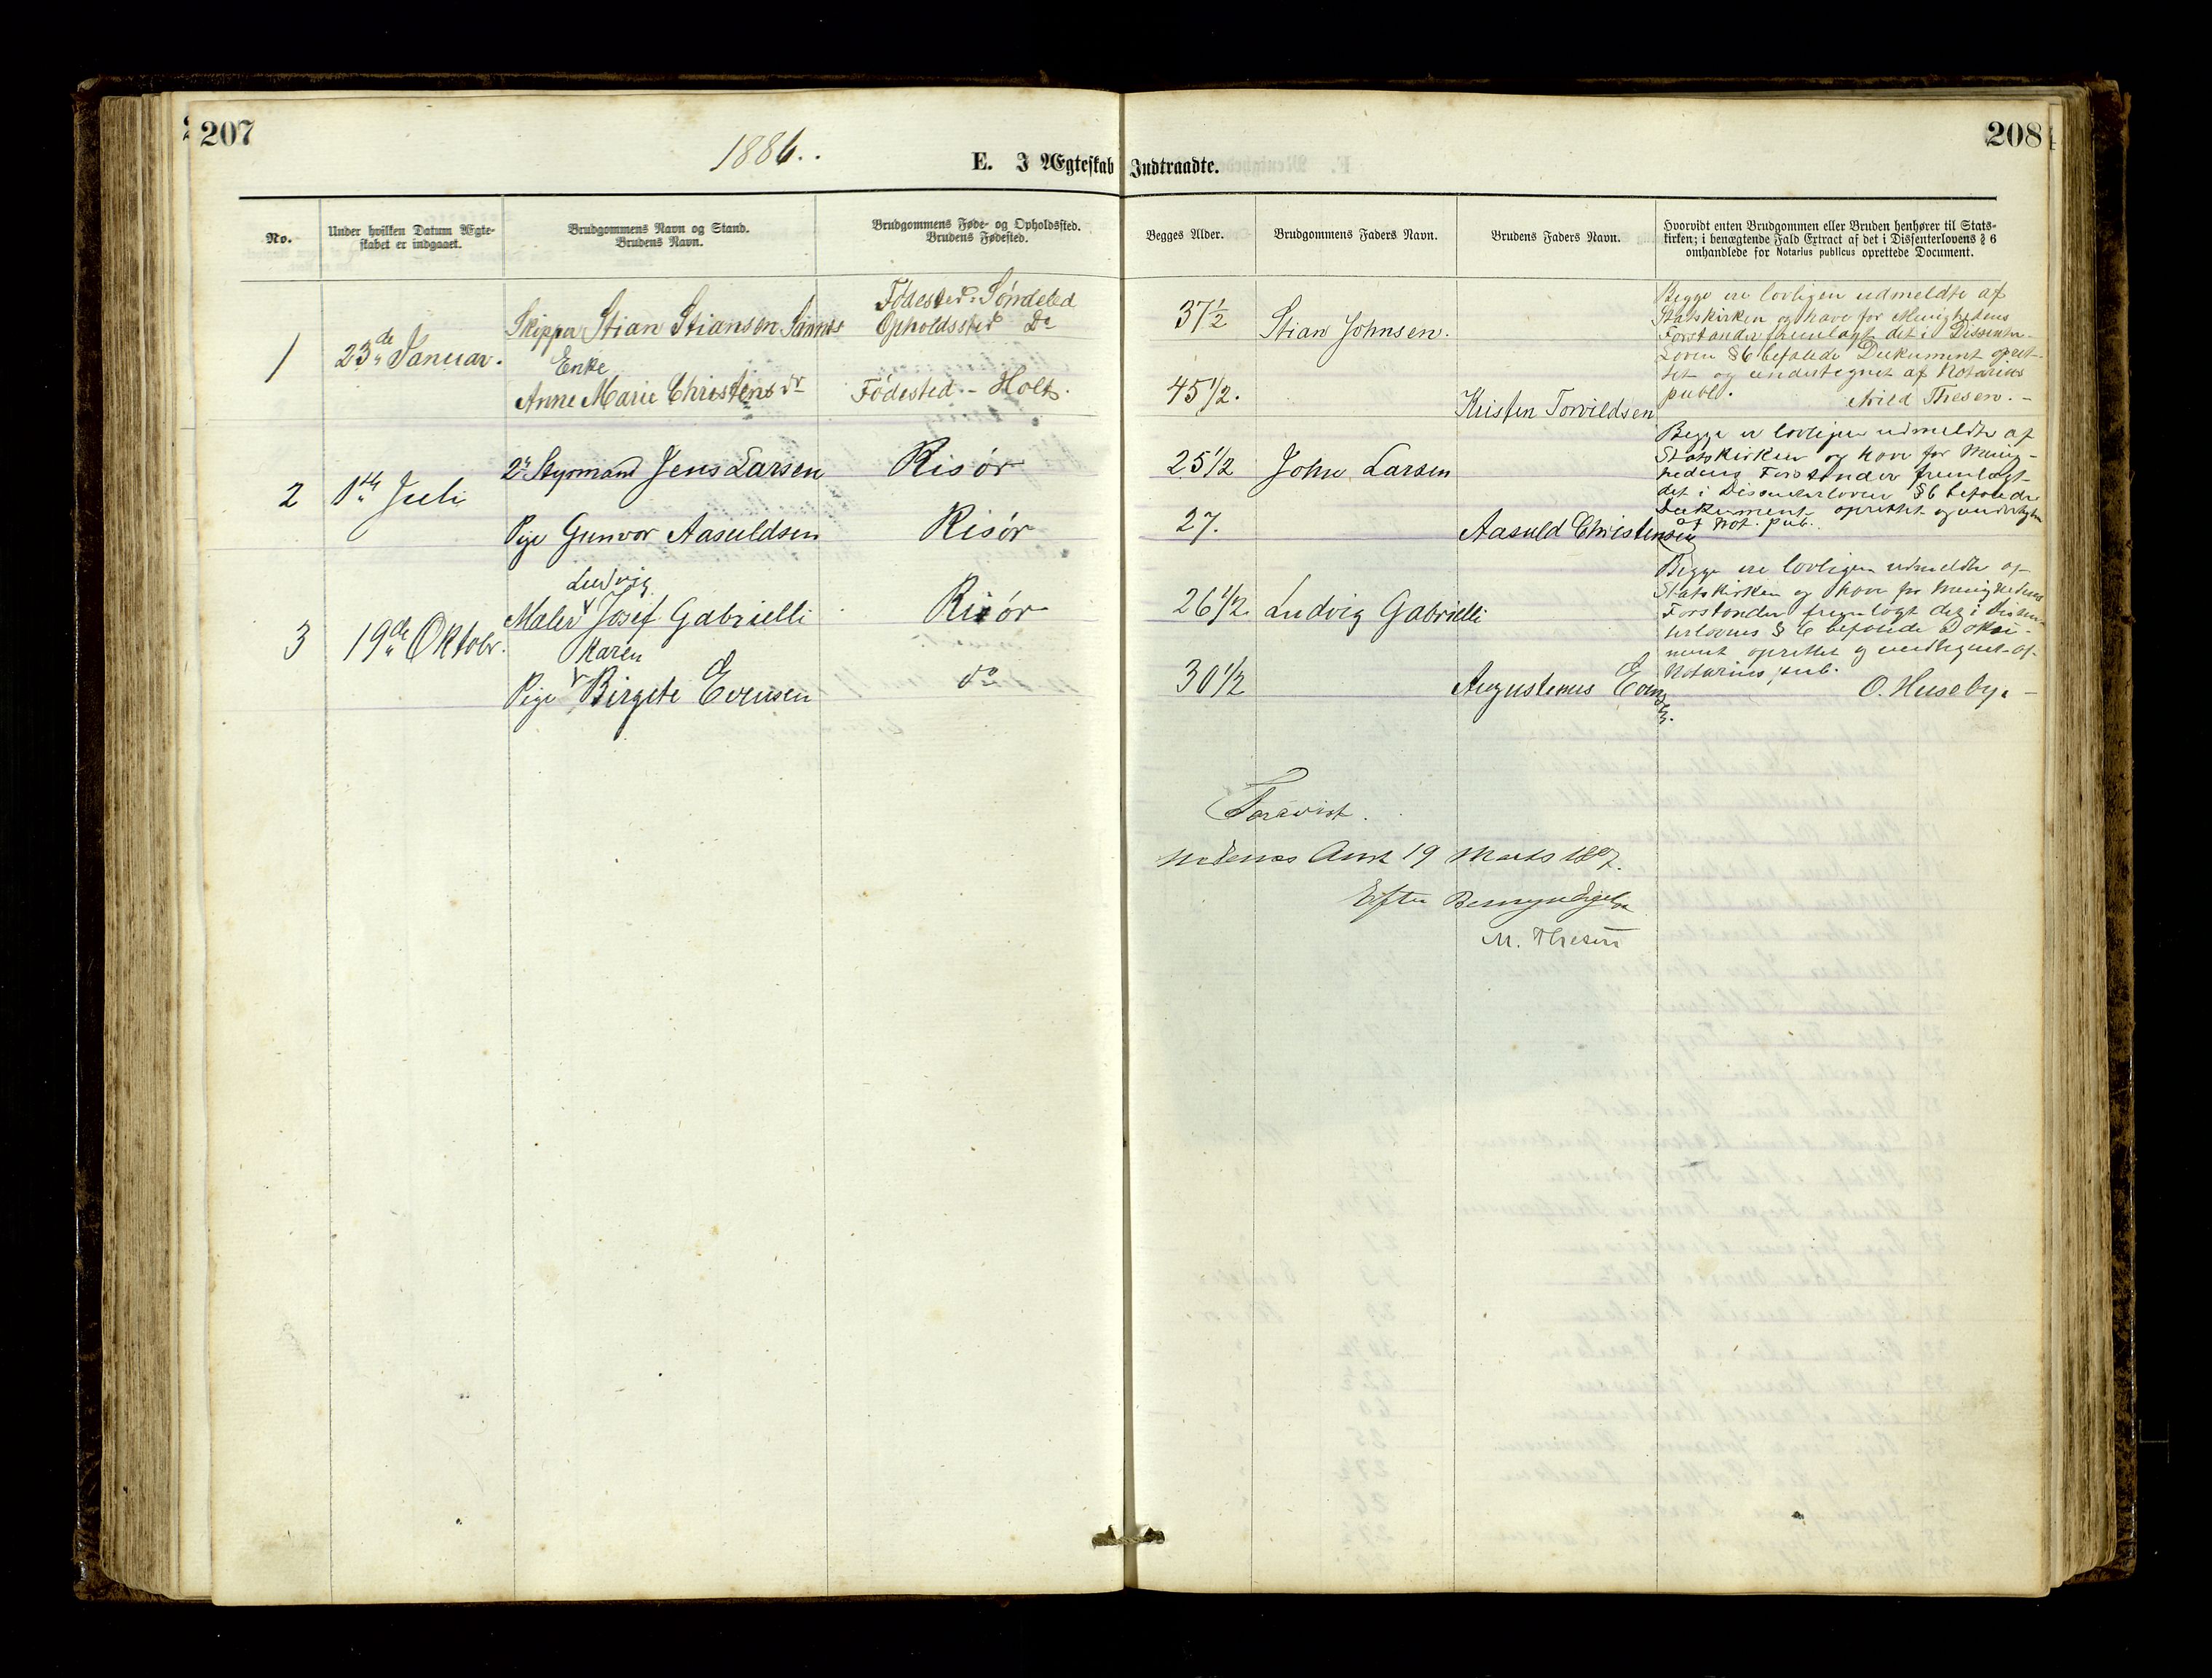 207
208
1886.
E. I Ægteskab Indtraadte.
No.
Under hvilken Datum Ægte-
skabet er indgaaet.
Brudgommens Navn og Stand.
Brudens Navn.
Brudgommens Føde- og Opholdssted.
Brudens Fødested.
Begges Alder.
Brudgommens Faders Navn.
Brudens Faders Navn.
Hvorvidt enten Brudgommen eller Bruden henhører til Stats-
kirken; i benægtende Fald Extract af det i Dissenterlovens § 6
omhandlede for Notarius publicus oprettede Document.
1
23de Januar.
Skipper Stian Stiansen
Enke
Anne Marie Christensdr
Fødested. Søndeled
Opholdssted Do
Fødested - Holt.
37½
45 1/2.
Stian Johnsen.
Kristen Torvildsen
Begge ere lovligen udmeldte af
Statskirken og have for Menighedens
Forstander fremlagt det i Dissenter-
Loven §6 befalede Dokument opret-
tet og undertegnet af Notarius
publ. Thesen. -
2
1ste Juli
2d Styrmand Jens Larsen
Pige Gunvor Aasuldsen
Risör
Risör
25 1/2
27.
John Larsen
Aasuld Christensen
Begge er lovligen udmeldte af
Statskirken og have for Menig-
hedens Forstander fremlagt
det i Dissenterloven §6 befalede
Dokument oprettet og undertegnet
af Not. pub.
3
19de Oktobr.
Ludvig
Maler Josef Gabrielli
Karen
Pige Birgete Evensen
Risör
do
26 1/2.
30 1/2
Ludvig Gabrielli
Augustenus Evensen.
Begge ere lovligen udmeldte af
Statskirken og have for Menighedens
Forstander fremlagt det i Dissen-
terlovens § 6 befalede Doku-
ment oprettet og undtegnet af
Notarius pub.
O. Huseby. -
Forevist.
Nedenes Amt 19 Marts 1887.
Efter Bemyndigelse
M. Thesen